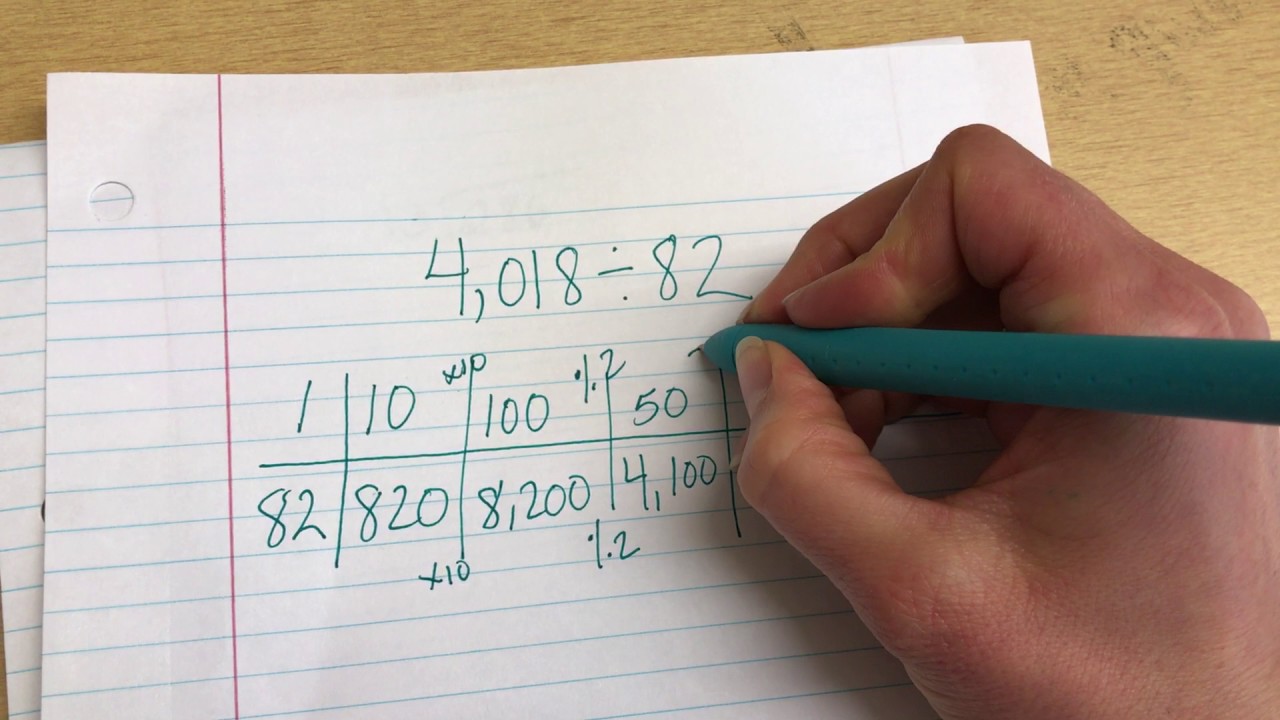 4,018÷82
x10 ÷2
1 10 100 50
82 820 8,200 4,100
x10 ÷2